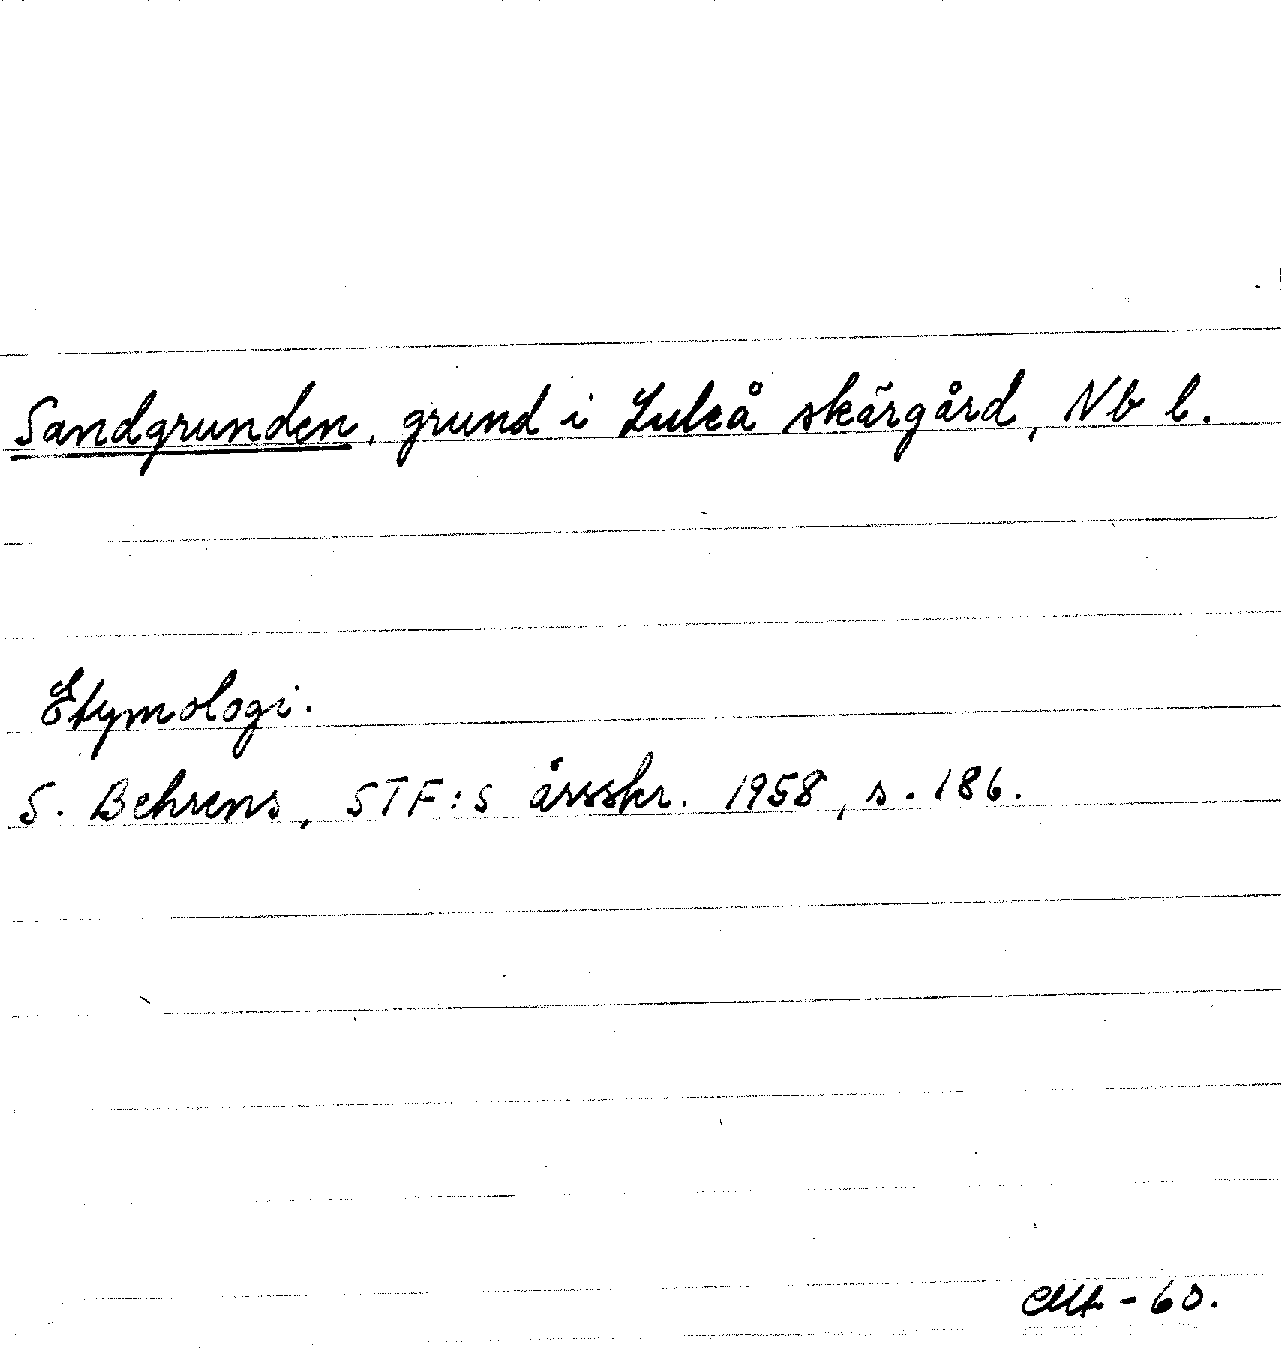 Sandgrunden, grund i Luleå skärgård, Nb l.
Etymologi.
S. Behrens, STF:s årsskr. 1958, s. 186.
-60.